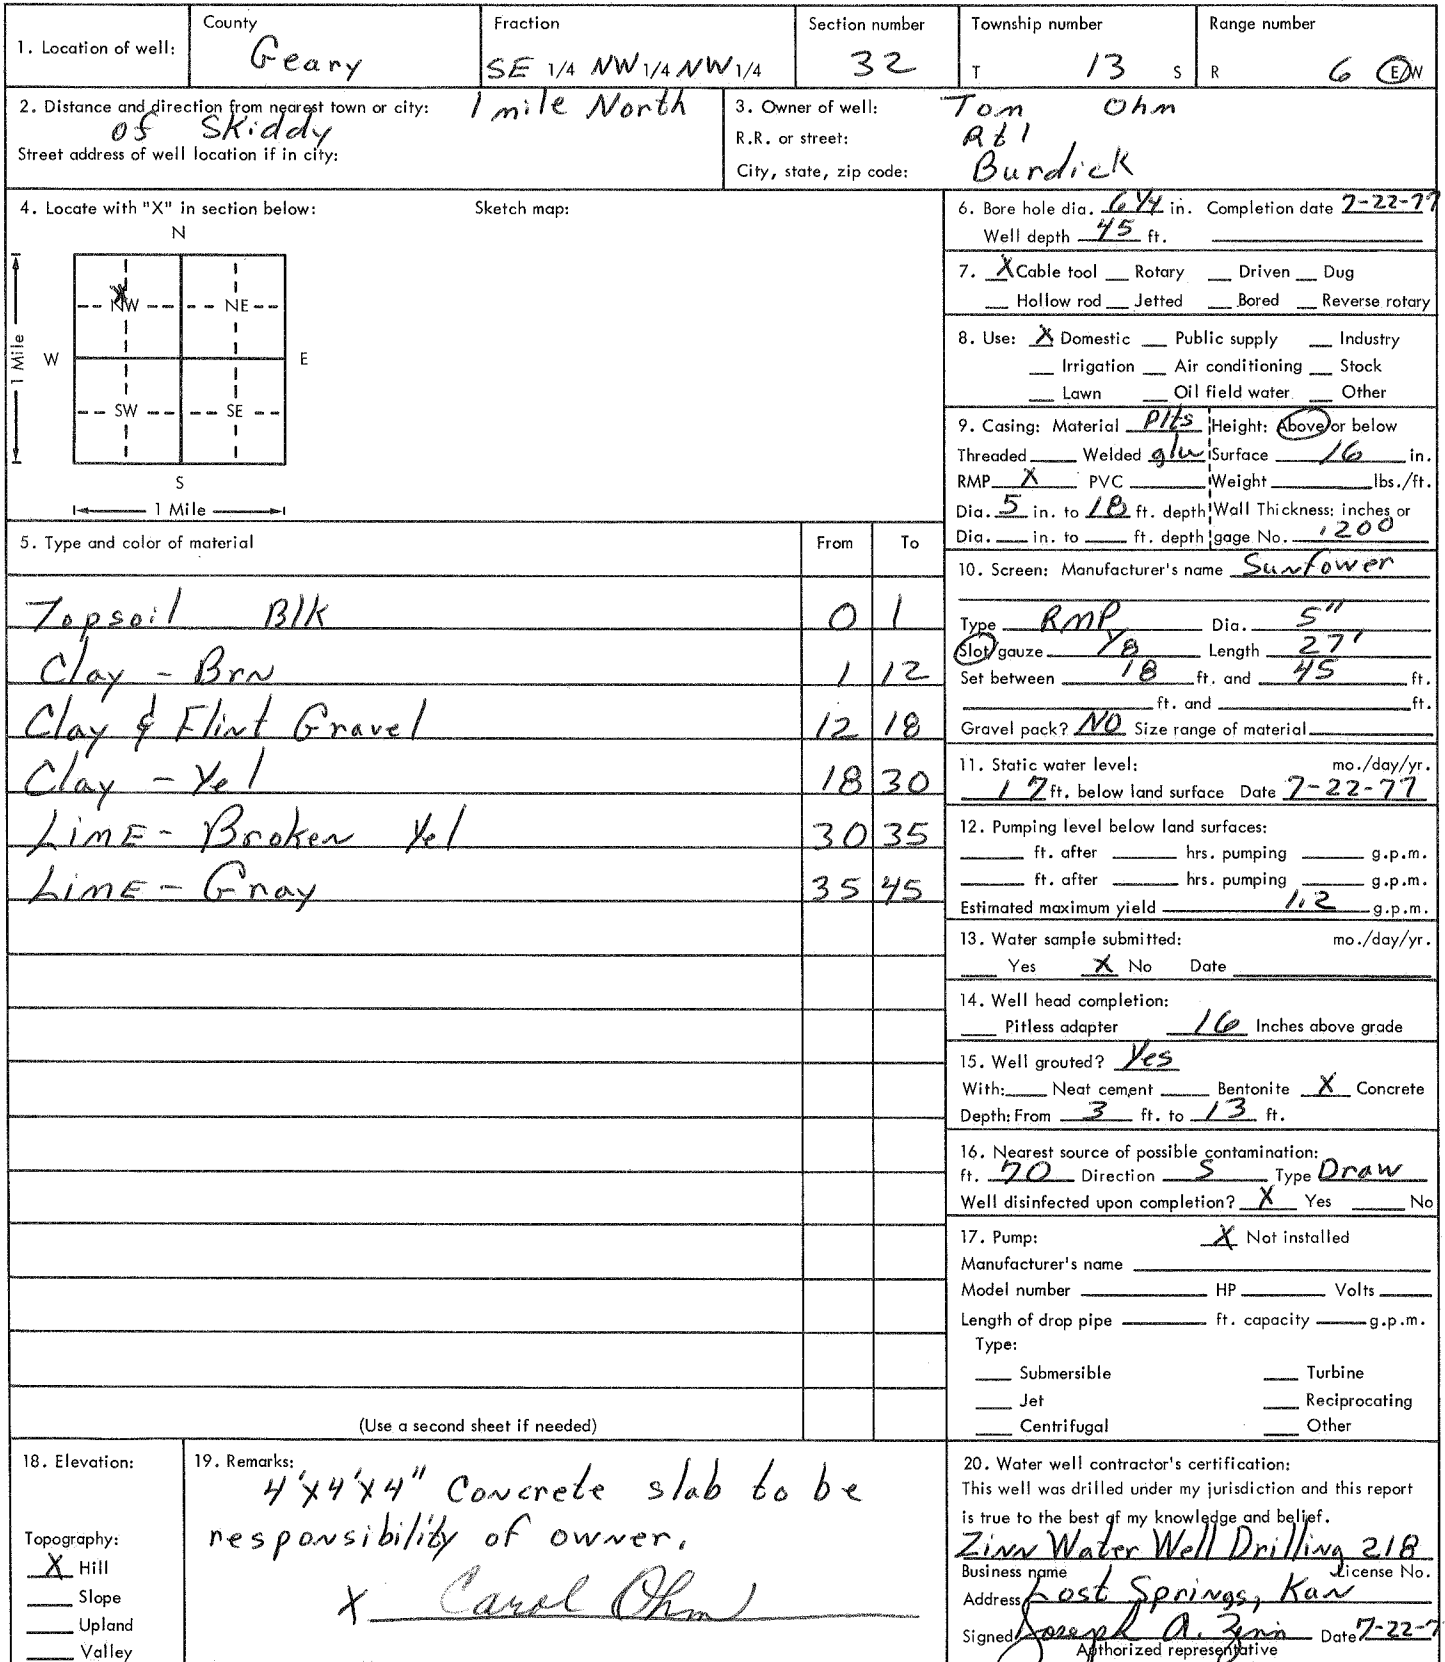 1. Location of well: County Geary Fraction SE 1/4 NW 1/4 NW 1/4 Section number 32 Township number T 13 S Range number R 6 E/W
2. Distance and direction from nearest town or city: 1 mile North
of Skiddy
Street address of well location if in city:
3. Owner of well: Tom Ohm
R.R. or street: Rt 1
City, state, zip code: Burdick
4. Locate with "X" in section below: Sketch map:
N
X
NW NE
W E
1 Mile
SW SE
S
1 Mile
5. Type and color of material From To
Topsoil Blk 0 1
Clay - Brn 1 12
Clay & Flint Gravel 12 18
Clay - Yel 18 30
Lime - Broken Yel 30 35
Lime - Gray 35 45
(Use a second sheet if needed)
6. Bore hole dia. 6 1/4 in. Completion date 7-22-77
Well depth 45 ft.
7. X Cable tool Rotary Driven Dug
Hollow rod Jetted Bored Reverse rotary
8. Use: X Domestic Public supply Industry
Irrigation Air conditioning Stock
Lawn Oil field water Other
9. Casing: Material Plts Height: Above or below
Threaded Welded glu Surface 16 in.
RMP X PVC Weight lbs./ft.
Dia. 5 in. to 18 ft. depth Wall Thickness: inches or
Dia. in. to ft. depth gage No. .200
10. Screen: Manufacturer's name Sunfower
Type RMP Dia. 5"
Slot/gauze 1/8 Length 27'
Set between 18 ft. and 45 ft.
ft. and ft.
Gravel pack? NO Size range of material
11. Static water level: mo./day/yr.
17 ft. below land surface Date 7-22-77
12. Pumping level below land surfaces:
ft. after hrs. pumping g.p.m.
ft. after hrs. pumping g.p.m.
Estimated maximum yield 1.2 g.p.m.
13. Water sample submitted: mo./day/yr.
Yes X No Date
14. Well head completion:
Pitless adapter 16 Inches above grade
15. Well grouted? Yes
With: Neat cement Bentonite X Concrete
Depth: From 3 ft. to 13 ft.
16. Nearest source of possible contamination:
ft. 70 Direction S Type Draw
Well disinfected upon completion? X Yes No
17. Pump: X Not installed
Manufacturer's name
Model number HP Volts
Length of drop pipe ft. capacity g.p.m.
Type:
Submersible Turbine
Jet Reciprocating
Centrifugal Other
18. Elevation:
Topography:
X Hill
Slope
Upland
Valley
19. Remarks:
4'x4'x4" Concrete slab to be
responsibility of owner.
X Carol Ohm
20. Water well contractor's certification:
This well was drilled under my jurisdiction and this report
is true to the best of my knowledge and belief.
Zinn Water Well Drilling 218
Business name License No.
Address Lost Springs, Kan
Signed Joseph A. Zinn Date 7-22-7
Authorized representative